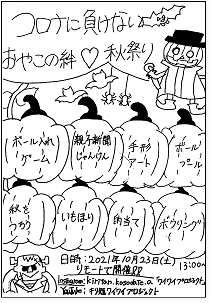 コロナに負けない
おやこの絆♡秋祭り
ボール入れ
ゲーム
親子新聞
じゃんけん
手形
アート
ボール
プール
秋を
つかう
いもほり
的当て
ボウリング
日時:2021年10月23日(土)
13:00〜
リモートで開催!!
Instagram: kiritan.kosodate.a 「ワイワイプロジェクト」
YouTube: キリ短ワイワイプロジェクト